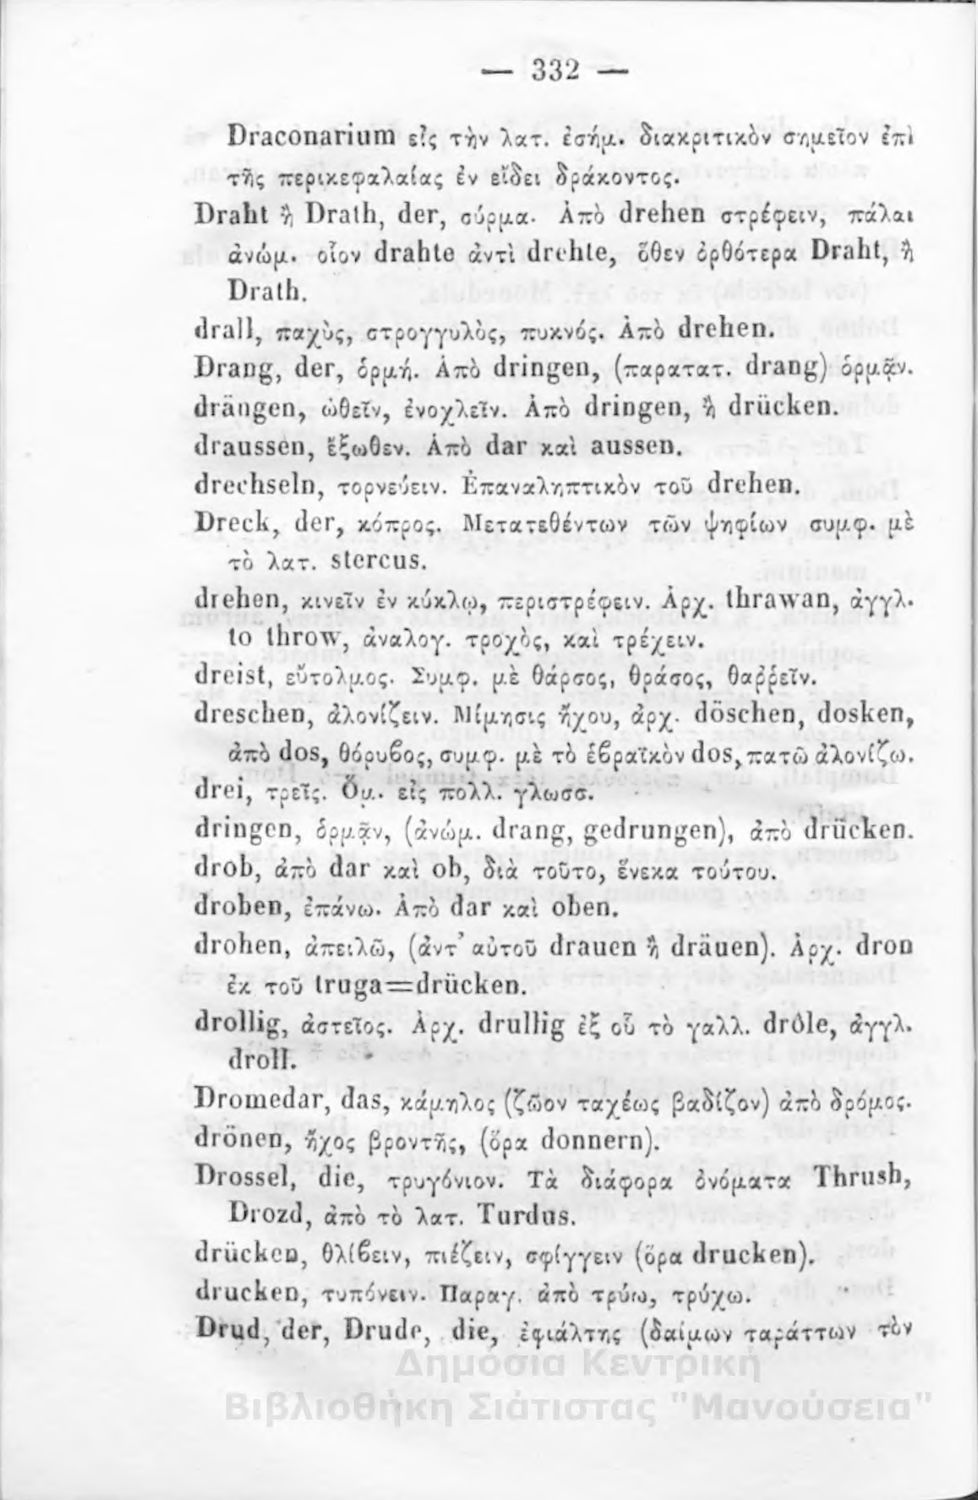 — 332 —
Draconarium εἰς τὴν λατ. ἐσήμ. διακριτικὸν σημεῖον ἐπὶ
τῆς περικεφαλαίας ἐν εἴδει δράκοντος.
Draht ἢ Drath, der, σύρμα. Ἀπὸ drehen στρέφειν, πάλαι
ἀνώμ. οἷον drahte ἀντὶ drehte, ὅθεν ὀρθότερα Draht, ἢ
Drath.
drall, παχὺς, στρογγυλὸς, πυκνός. Ἀπὸ drehen.
Drang, der, ὁρμή. Ἀπὸ dringen, (παρατατ. drang) ὁρμᾷν.
drängen, ὠθεῖν, ἐνοχλεῖν. Ἀπὸ dringen, ἢ drücken.
draussen, ἔξωθεν. Ἀπὸ dar καὶ aussen.
drechseln, τορνεύειν. Ἐπαναληπτικὸν τοῦ drehen.
Dreck, der, κόπρος. Μετατεθέντων τῶν ψηφίων συμφ. μὲ
τὸ λατ. stercus.
drehen, κινεῖν ἐν κύκλῳ, περιστρέφειν. Ἀρχ. thrawan, ἀγγλ.
to throw, ἀναλογ. τροχὸς, καὶ τρέχειν.
dreist, εὔτολμος. Συμφ. μὲ θάρσος, θράσος, θαῤῥεῖν.
dreschen, ἁλονίζειν. Μίμησις ἤχου, ἀρχ. döschen, dosken,
ἀπὸ dos, θόρυϐος, συμφ. μὲ τὸ ἑϐραϊκὸν dos, πατῶ ἁλονίζω.
drei, τρεῖς. Ὁμ. εἰς πολλ. γλωσσ.
dringen, ὁρμᾷν, (ἀνώμ. drang, gedrungen), ἀπὸ drücken.
drob, ἀπὸ dar καὶ ob, διὰ τοῦτο, ἕνεκα τούτου.
droben, ἐπάνω. Ἀπὸ dar καὶ oben.
drohen, ἀπειλῶ, (ἀντ' αὐτοῦ drauen ἢ dräuen). Ἀρχ. dron
ἐκ τοῦ truga=drücken.
drollig, ἀστεῖος. Ἀρχ. drullig ἐξ οὗ τὸ γαλλ. drôle, ἀγγλ.
droll.
Dromedar, das, κάμηλος (ζῶον ταχέως βαδίζον) ἀπὸ δρόμος.
drönen, ἦχος βροντῆς, (ὅρα donnern).
Drossel, die, τρυγόνιον. Τὰ διάφορα ὀνόματα Thrush,
Drozd, ἀπὸ τὸ λατ. Turdus.
drücken, θλίϐειν, πιέζειν, σφίγγειν (ὅρα drucken).
drucken, τυπόνειν. Παραγ. ἀπὸ τρύω, τρύχω.
Drud, der, Drude, die, ἐφιάλτης (δαίμων ταράττων τὸν
Δημόσια Κεντρική
Βιβλιοθήκη Σιάτιστας "Μανούσεια"